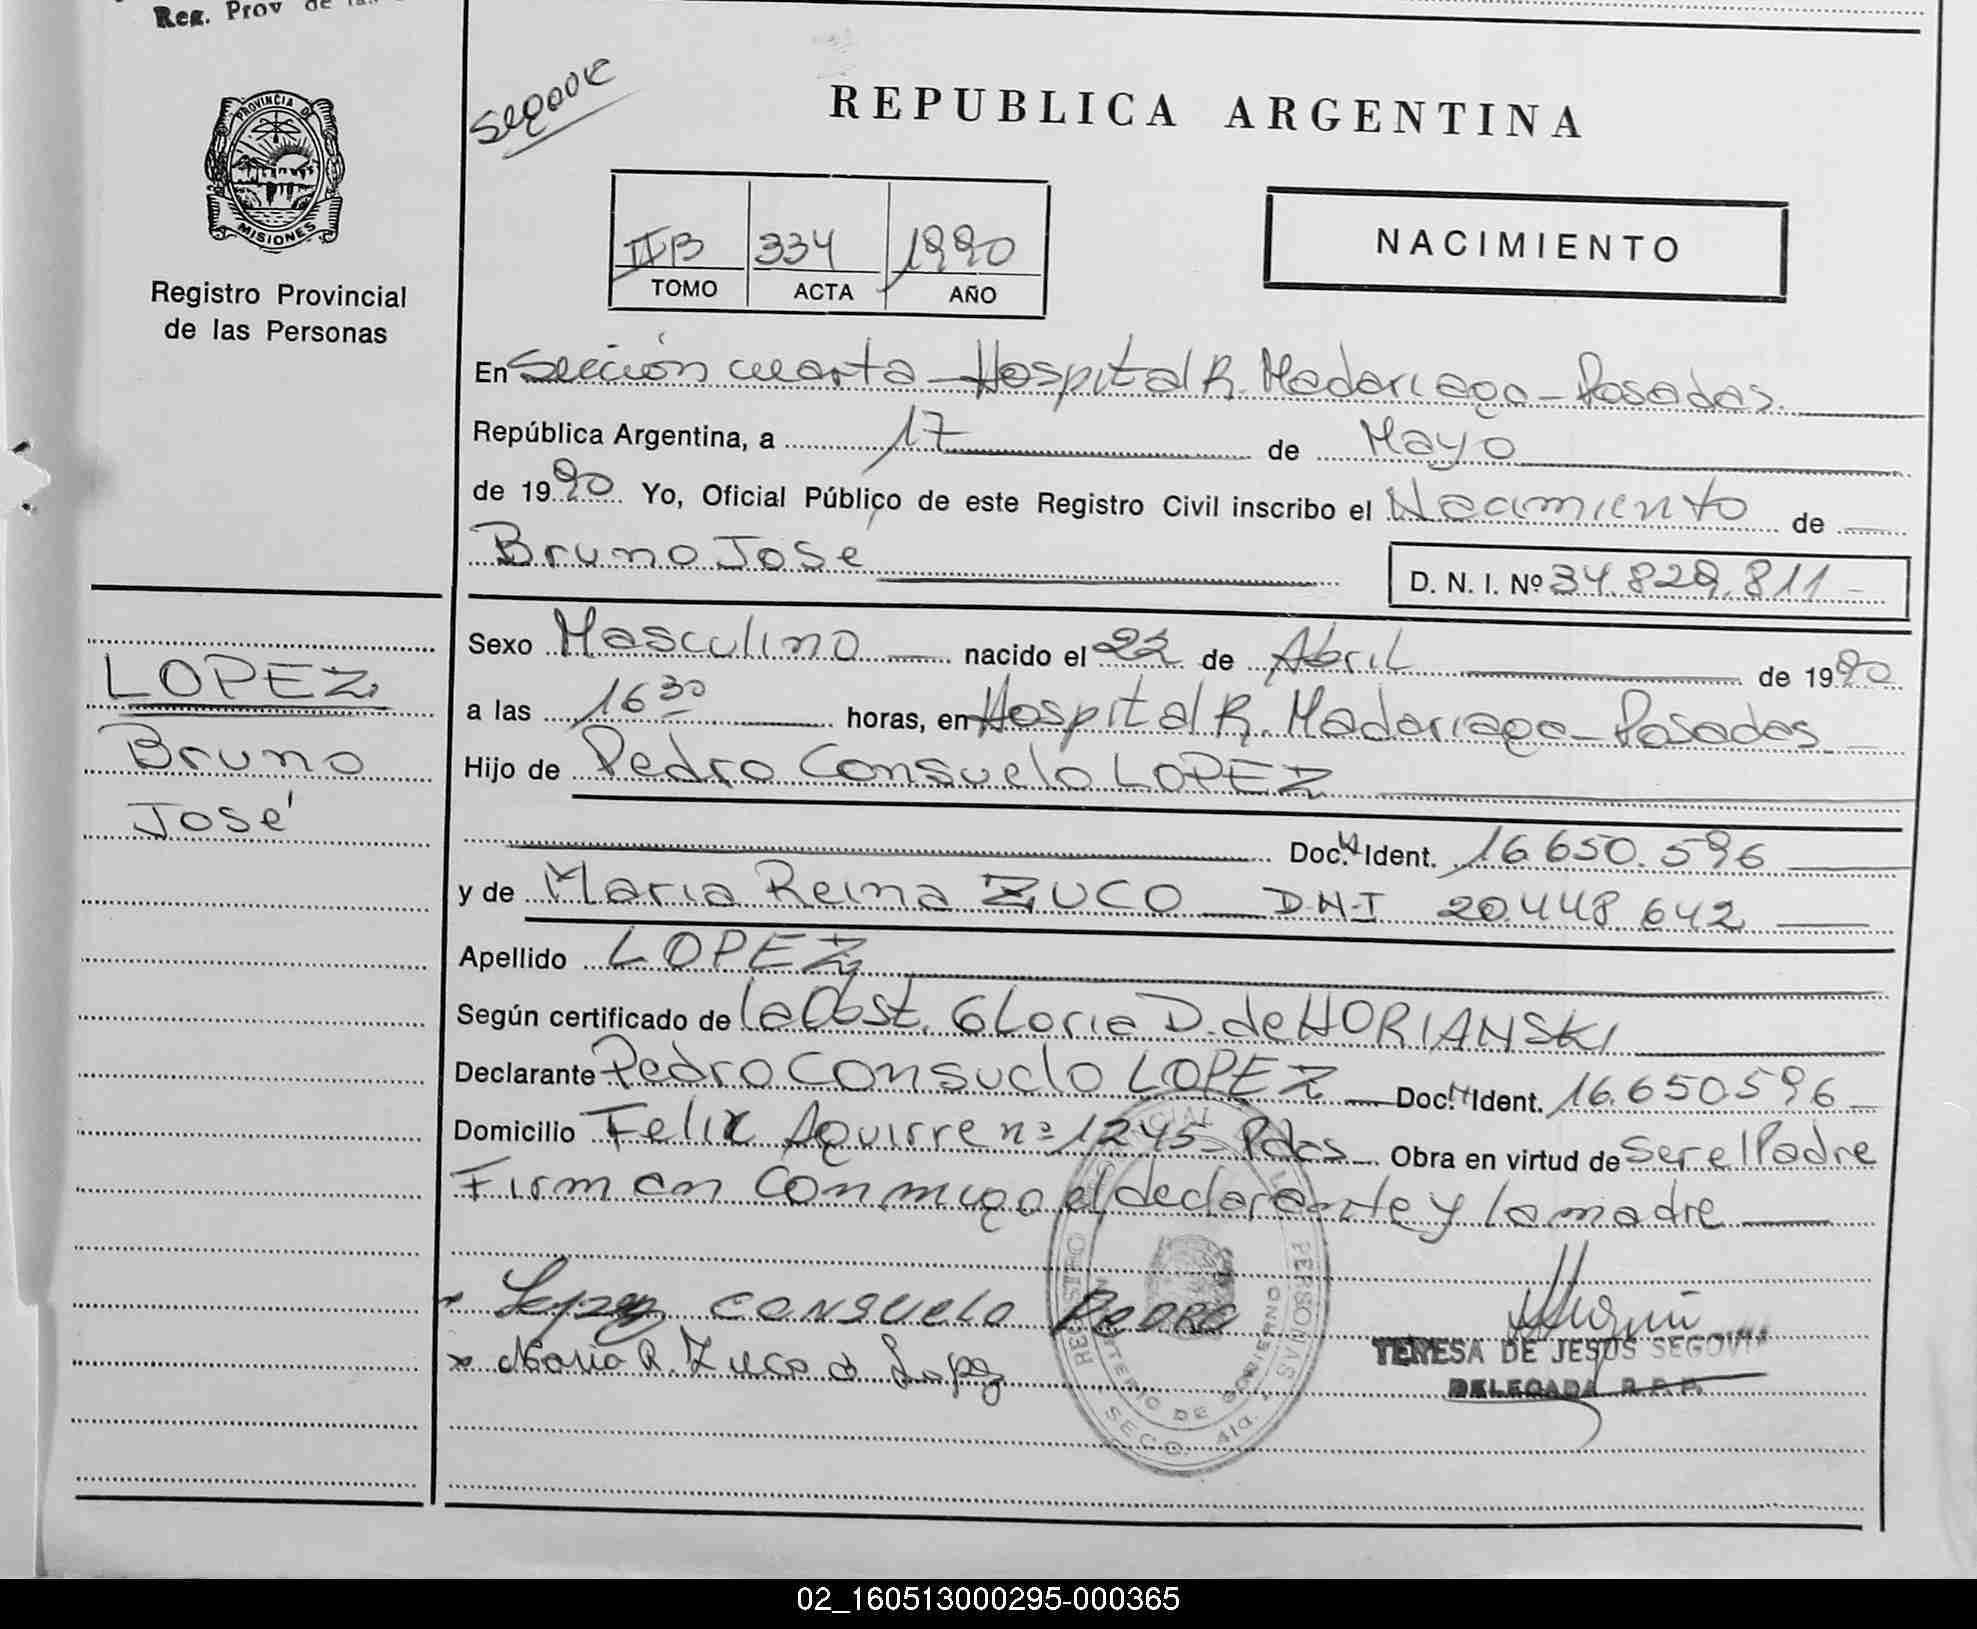 Reg. Prov de las
PROVINCIA DE
MISIONES
Registro Provincial
de las Personas
REPUBLICA ARGENTINA
IIB 334 1990
TOMO ACTA AÑO
NACIMIENTO
En Sección cuarta - Hospital R. Madariaga - Posadas.
República Argentina, a 17 de Mayo
de 1990 Yo, Oficial Público de este Registro Civil inscribo el Nacimiento de
Bruno Jose D. N. I. Nº 34.829.811
Sexo Masculino nacido el 22 de Abril de 1990
LOPEZ
a las 16 30 horas, en Hospital R. Madariaga - Posadas
Bruno
Hijo de Pedro Consuelo LOPEZ
José
Doc. Ident. 16.650.596
y de Maria Reina ZUCO D.N.I 20.448.642
Apellido LOPEZ
Según certificado de la Obst. Gloria D. de HORIANSKI
Declarante Pedro Consuelo LOPEZ Doc. Ident. 16.650596
Domicilio Felix Aguirre nº 1245 - Pdas Obra en virtud de Ser el Padre
Firman conmigo el declarante y la madre
Lopez CONSUELO PEDRO
Maria R. Zuco d Lopez
REGISTRO PERSONAS
MINISTERIO DE GOBIERNO
SECC. 4ta.
TERESA DE JESUS SEGOVIA
DELEGADA R.P.P.
02_160513000295-000365